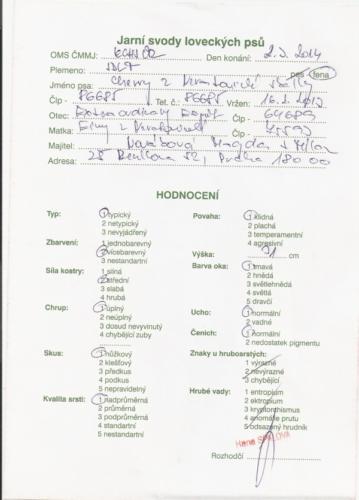 Jarní svody loveckých psů
OMS ČMMJ: KCHN ČR Den konání: 2.3.2014
Plemeno: pes fena
Jméno psa: Cherry z
Číp - 86685 Tet. č.: 86685 Vržen: 16.
Otec: Číp - 64689
Matka: z Číp -
Majitel: Magda
Adresa: 52, Praha 180 00
HODNOCENÍ
Typ: 1 typický
2 netypický
3 nevyjádřený
Zbarvení: 1 jednobarevný
2 vícebarevný
3 nestandartní
Síla kostry: 1 silná
2 střední
3 slabá
4 hrubá
Chrup: 1 úplný
2 neúplný
3 dosud nevyvinutý
4 chybějící zuby
Skus: 1 nůžkový
2 klešťový
3 předkus
4 podkus
5 nepravidelný
Kvalita srsti: 1 nadprůměrná
2 průměrná
3 podprůměrná
4 standartní
5 nestandartní
Povaha: 1 klidná
2 plachá
3 temperamentní
4 agresivní
Výška: 71 cm
Barva oka: 1 tmavá
2 hnědá
3 světlehnědá
4 světlá
5 dravčí
Ucho: 1 normální
2 vadné
Čenich: 1 normální
2 nedostatek pigmentu
Znaky u hruboarstých:
1 výrazné
2 nevýrazné
3 chybějící
Hrubé vady: 1 entropium
2 ektropium
3 kryptorchismus
4 anomálie prutu
5 odsazený hrudník
Hana
Rozhodčí